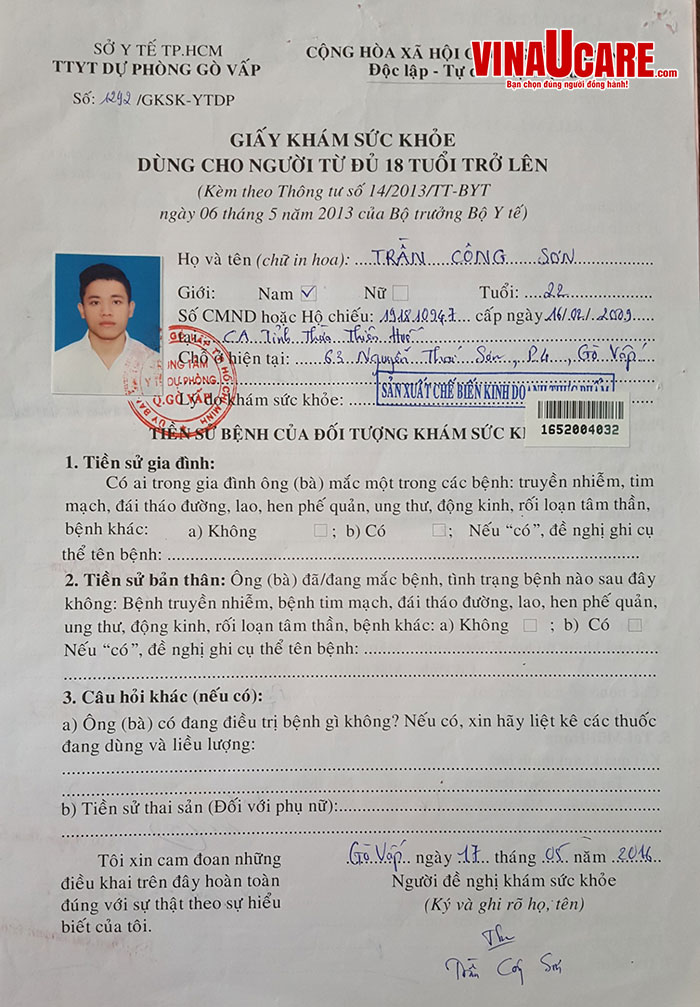 SỞ Y TẾ TP.HCM
TTYT DỰ PHÒNG GÒ VẤP
Số: 1292 /GKSK-YTDP
CỘNG HÒA XÃ HỘI
Độc lập - Tự
VINAUCARE.com
Bạn chọn đúng người đồng hành!
GIẤY KHÁM SỨC KHỎE
DÙNG CHO NGƯỜI TỪ ĐỦ 18 TUỔI TRỞ LÊN
(Kèm theo Thông tư số 14/2013/TT-BYT
ngày 06 tháng 5 năm 2013 của Bộ trưởng Bộ Y tế)
Họ và tên (chữ in hoa): TRẦN CÔNG SƠN
Giới: Nam ☑ Nữ ☐ Tuổi: 22
Số CMND hoặc Hộ chiếu: 191810947 cấp ngày 16/02/2009
tại CA Tỉnh Thừa Thiên Huế
Chỗ ở hiện tại: 63 Nguyễn Thái Sơn, P.4, Gò Vấp
TRUNG TÂM
Y TẾ DỰ PHÒNG
Q.GÒ VẤP
Lý do khám sức khỏe: SẢN XUẤT CHẾ BIẾN KINH
1652004032
TIỀN SỬ BỆNH CỦA ĐỐI TƯỢNG KHÁM SỨC
1. Tiền sử gia đình:
Có ai trong gia đình ông (bà) mắc một trong các bệnh: truyền nhiễm, tim
mạch, đái tháo đường, lao, hen phế quản, ung thư, động kinh, rối loạn tâm thần,
bệnh khác: a) Không ☐; b) Có ☐; Nếu “có”, đề nghị ghi cụ
thể tên bệnh:
2. Tiền sử bản thân: Ông (bà) đã/đang mắc bệnh, tình trạng bệnh nào sau đây
không: Bệnh truyền nhiễm, bệnh tim mạch, đái tháo đường, lao, hen phế quản,
ung thư, động kinh, rối loạn tâm thần, bệnh khác: a) Không ☐; b) Có ☐
Nếu “có”, đề nghị ghi cụ thể tên bệnh:
3. Câu hỏi khác (nếu có):
a) Ông (bà) có đang điều trị bệnh gì không? Nếu có, xin hãy liệt kê các thuốc
đang dùng và liều lượng:
b) Tiền sử thai sản (Đối với phụ nữ):
Tôi xin cam đoan những
điều khai trên đây hoàn toàn
đúng với sự thật theo sự hiểu
biết của tôi.
Gò Vấp ngày 17 tháng 05 năm 2016
Người đề nghị khám sức khỏe
(Ký và ghi rõ họ, tên)
Trần Công Sơn